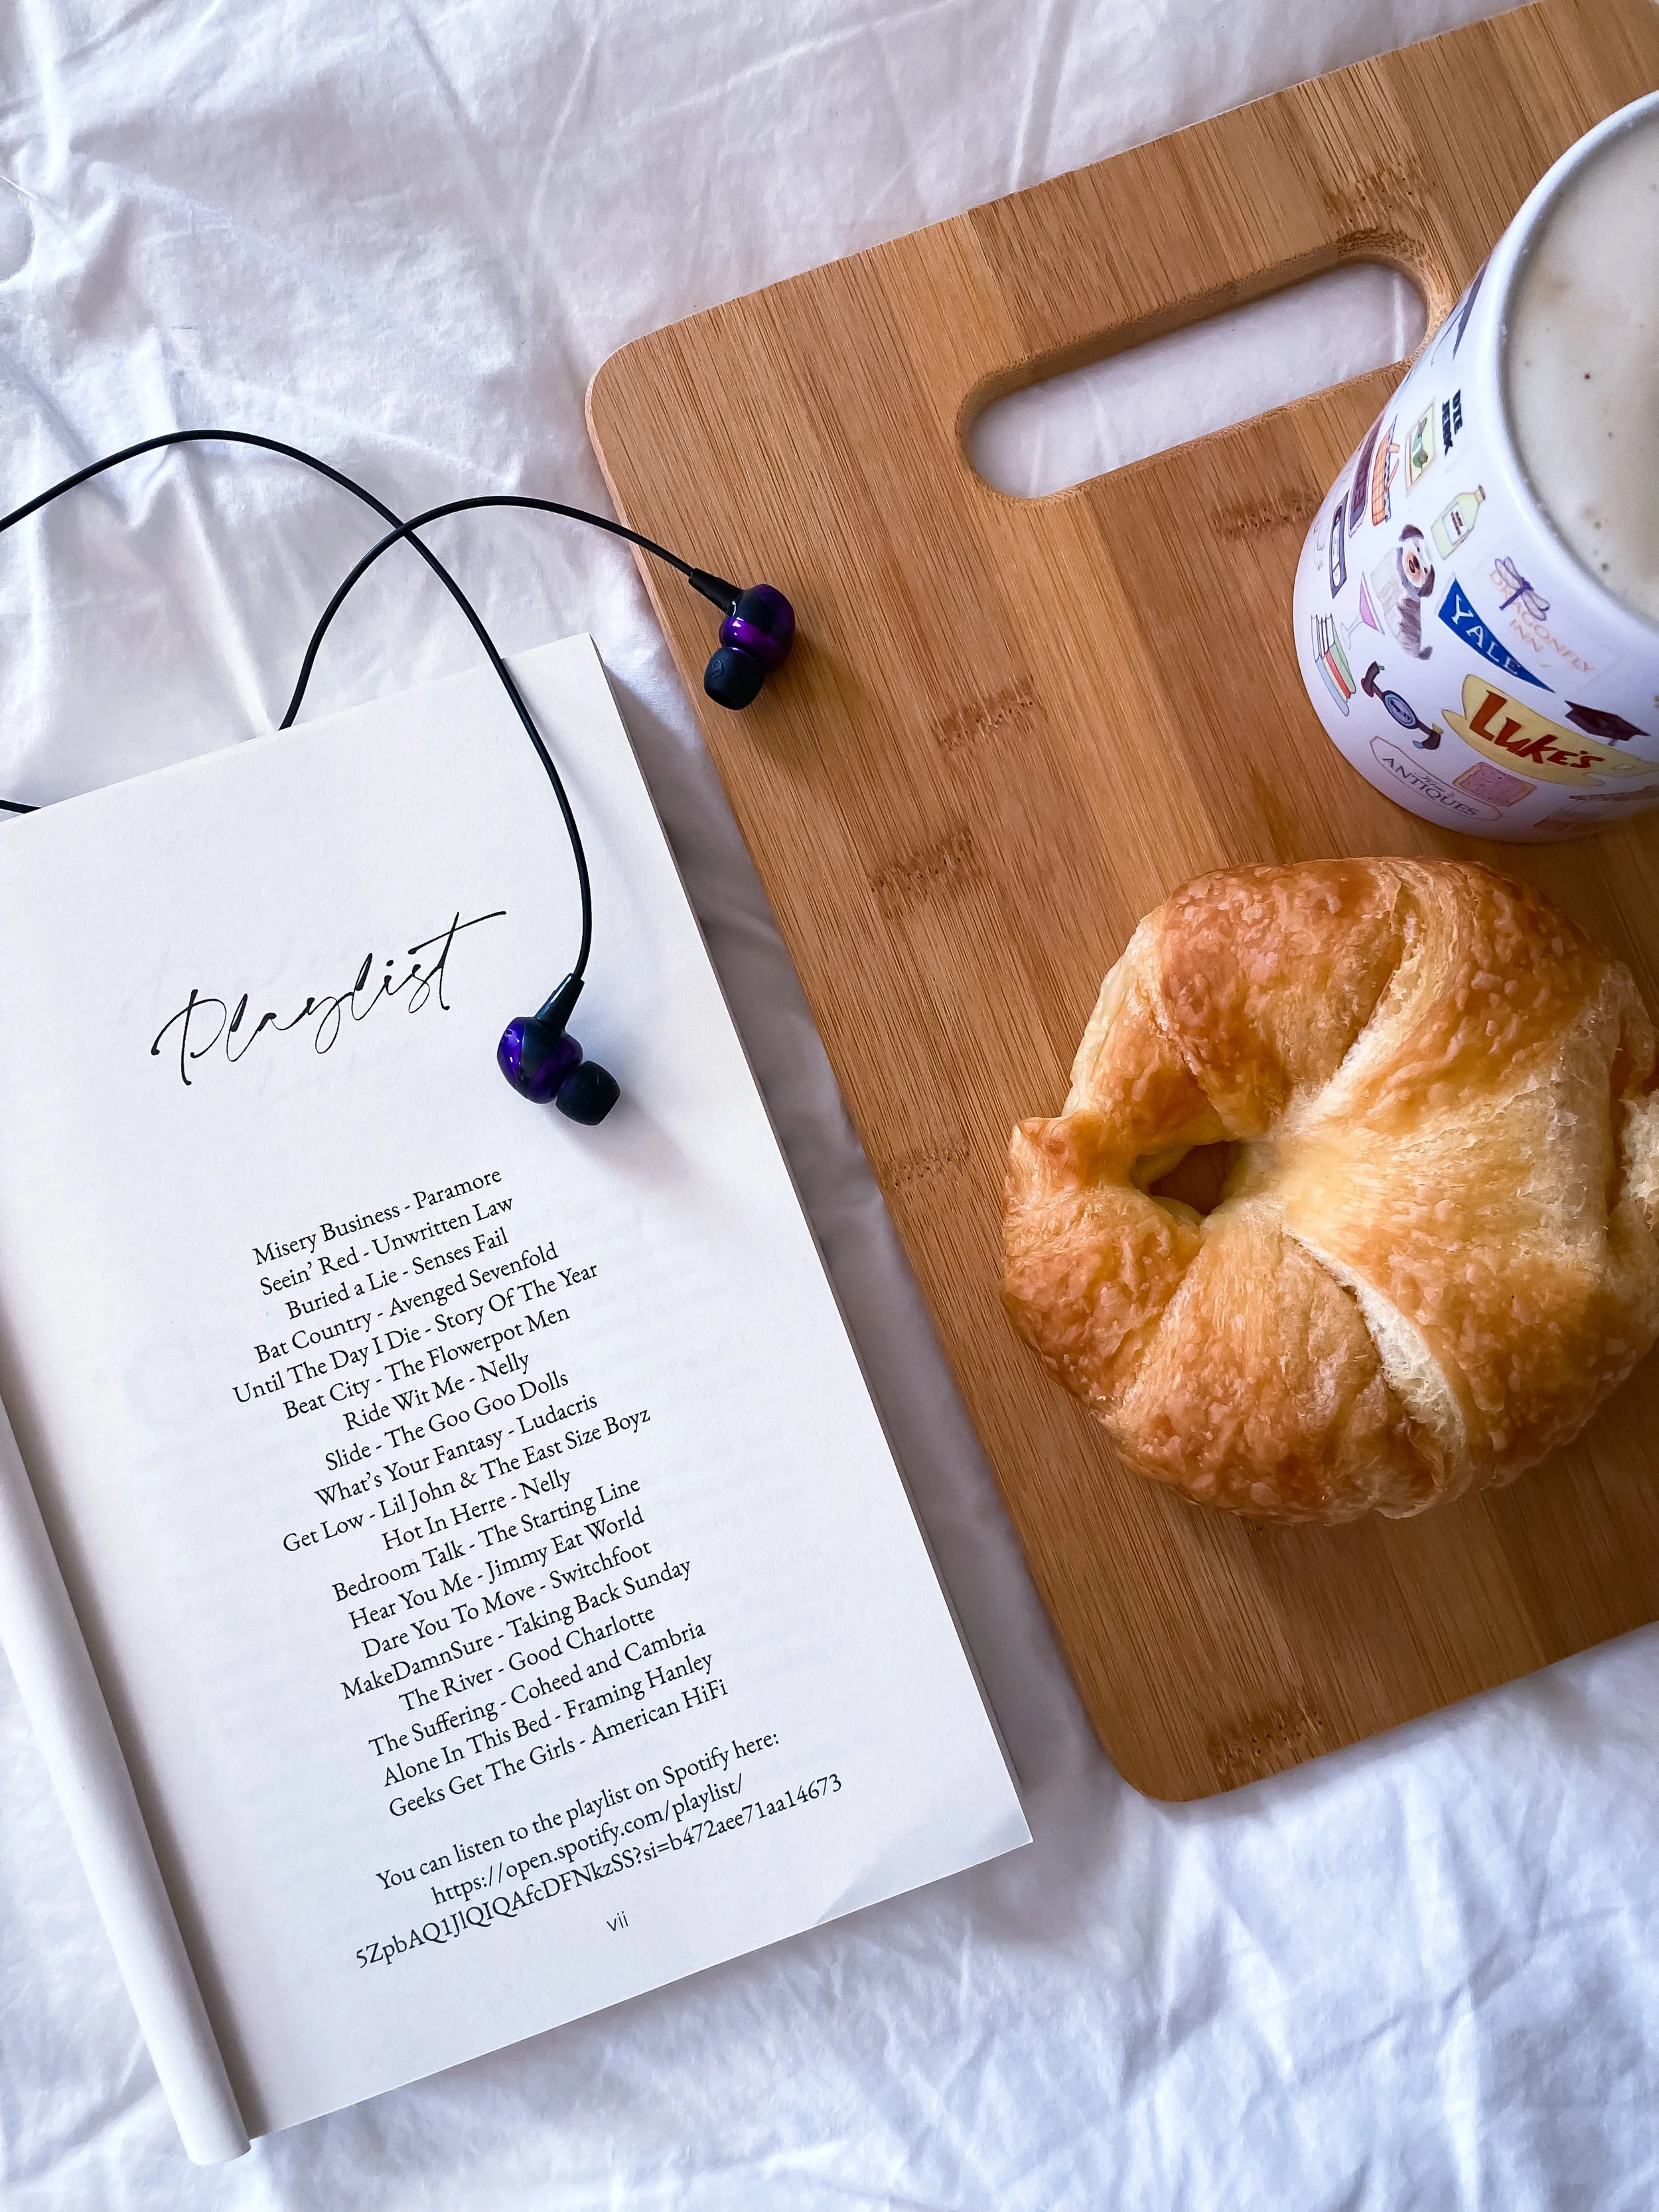 Playlist
Misery Business - Paramore
Seein' Red - Unwritten Law
Buried a Lie - Senses Fail
Bat Country - Avenged Sevenfold
Until The Day I Die - Story Of The Year
Beat City - The Flowerpot Men
Ride Wit Me - Nelly
Slide - The Goo Goo Dolls
What's Your Fantasy - Ludacris
Get Low - Lil John & The East Size Boyz
Hot In Herre - Nelly
Bedroom Talk - The Starting Line
Hear You Me - Jimmy Eat World
Dare You To Move - Switchfoot
MakeDamnSure - Taking Back Sunday
The River - Good Charlotte
The Suffering - Coheed and Cambria
Alone In This Bed - Framing Hanley
Geeks Get The Girls - American HiFi
You can listen to the playlist on Spotify here:
https://open.spotify.com/playlist/
5ZpbAQ1JlQIQAfcDFNkzSS?si=b472aee71aa14673
vii
DRAGONFLY
INN
YALE
LUKE'S
ANTIQUES